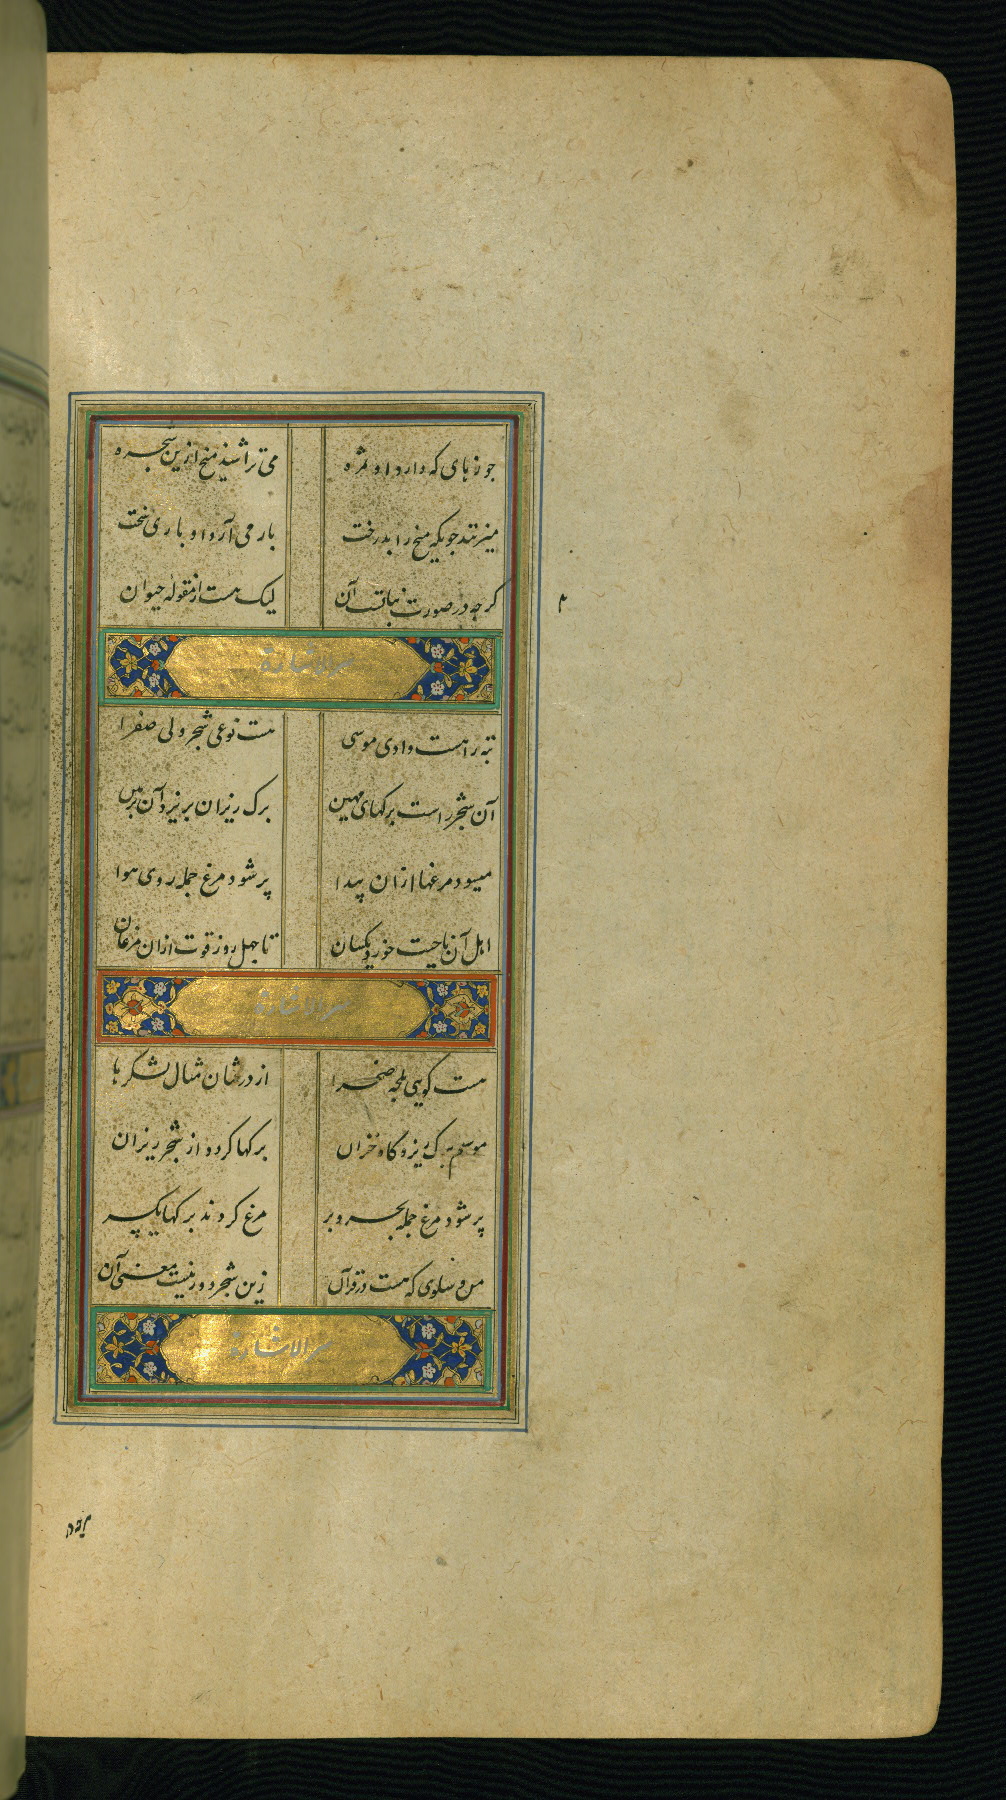 جوزهای که دارد او ثمره می تراشند منح ازین شجره
میزنند جونکه منح را بدرخت بار می آرد او باری سخت
کرچه در صورت نباتست آن لیک هست از مقوله حیوان
سر الاشارة
تیه راهست وادی موسی هست نوعی شجر ولی صفرا
آن شجر راست برکهای مهین برک ریزان بریزد آن بزمین
میشود مرغها ازان پیدا پر شود مرغ جمله روی هوا
اهل آن ناحیت خورد یکسان تا چهل روز قوت ازان مرغان
سر الاشارة
هست کویی صخرا از درشان مثال لشکرها
موسم برک ریز و کاه خزان برکها کردد از شجر ریزان
پر شود مرغ جمله بحر و بر مرغ کردند برکها یکسر
من و سلوی که هست در قرآن زین شجر دور نیست معنی آن
سر الاشارة